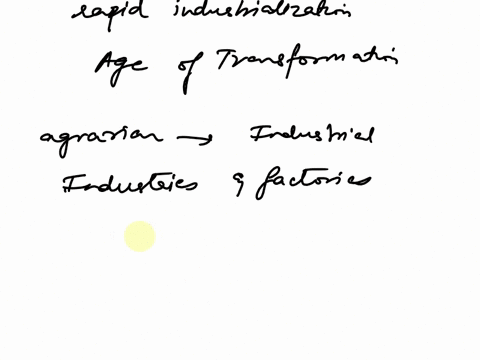 rapid industrialization
Age of Transformation
agrarian → Industrial
Industries & factories